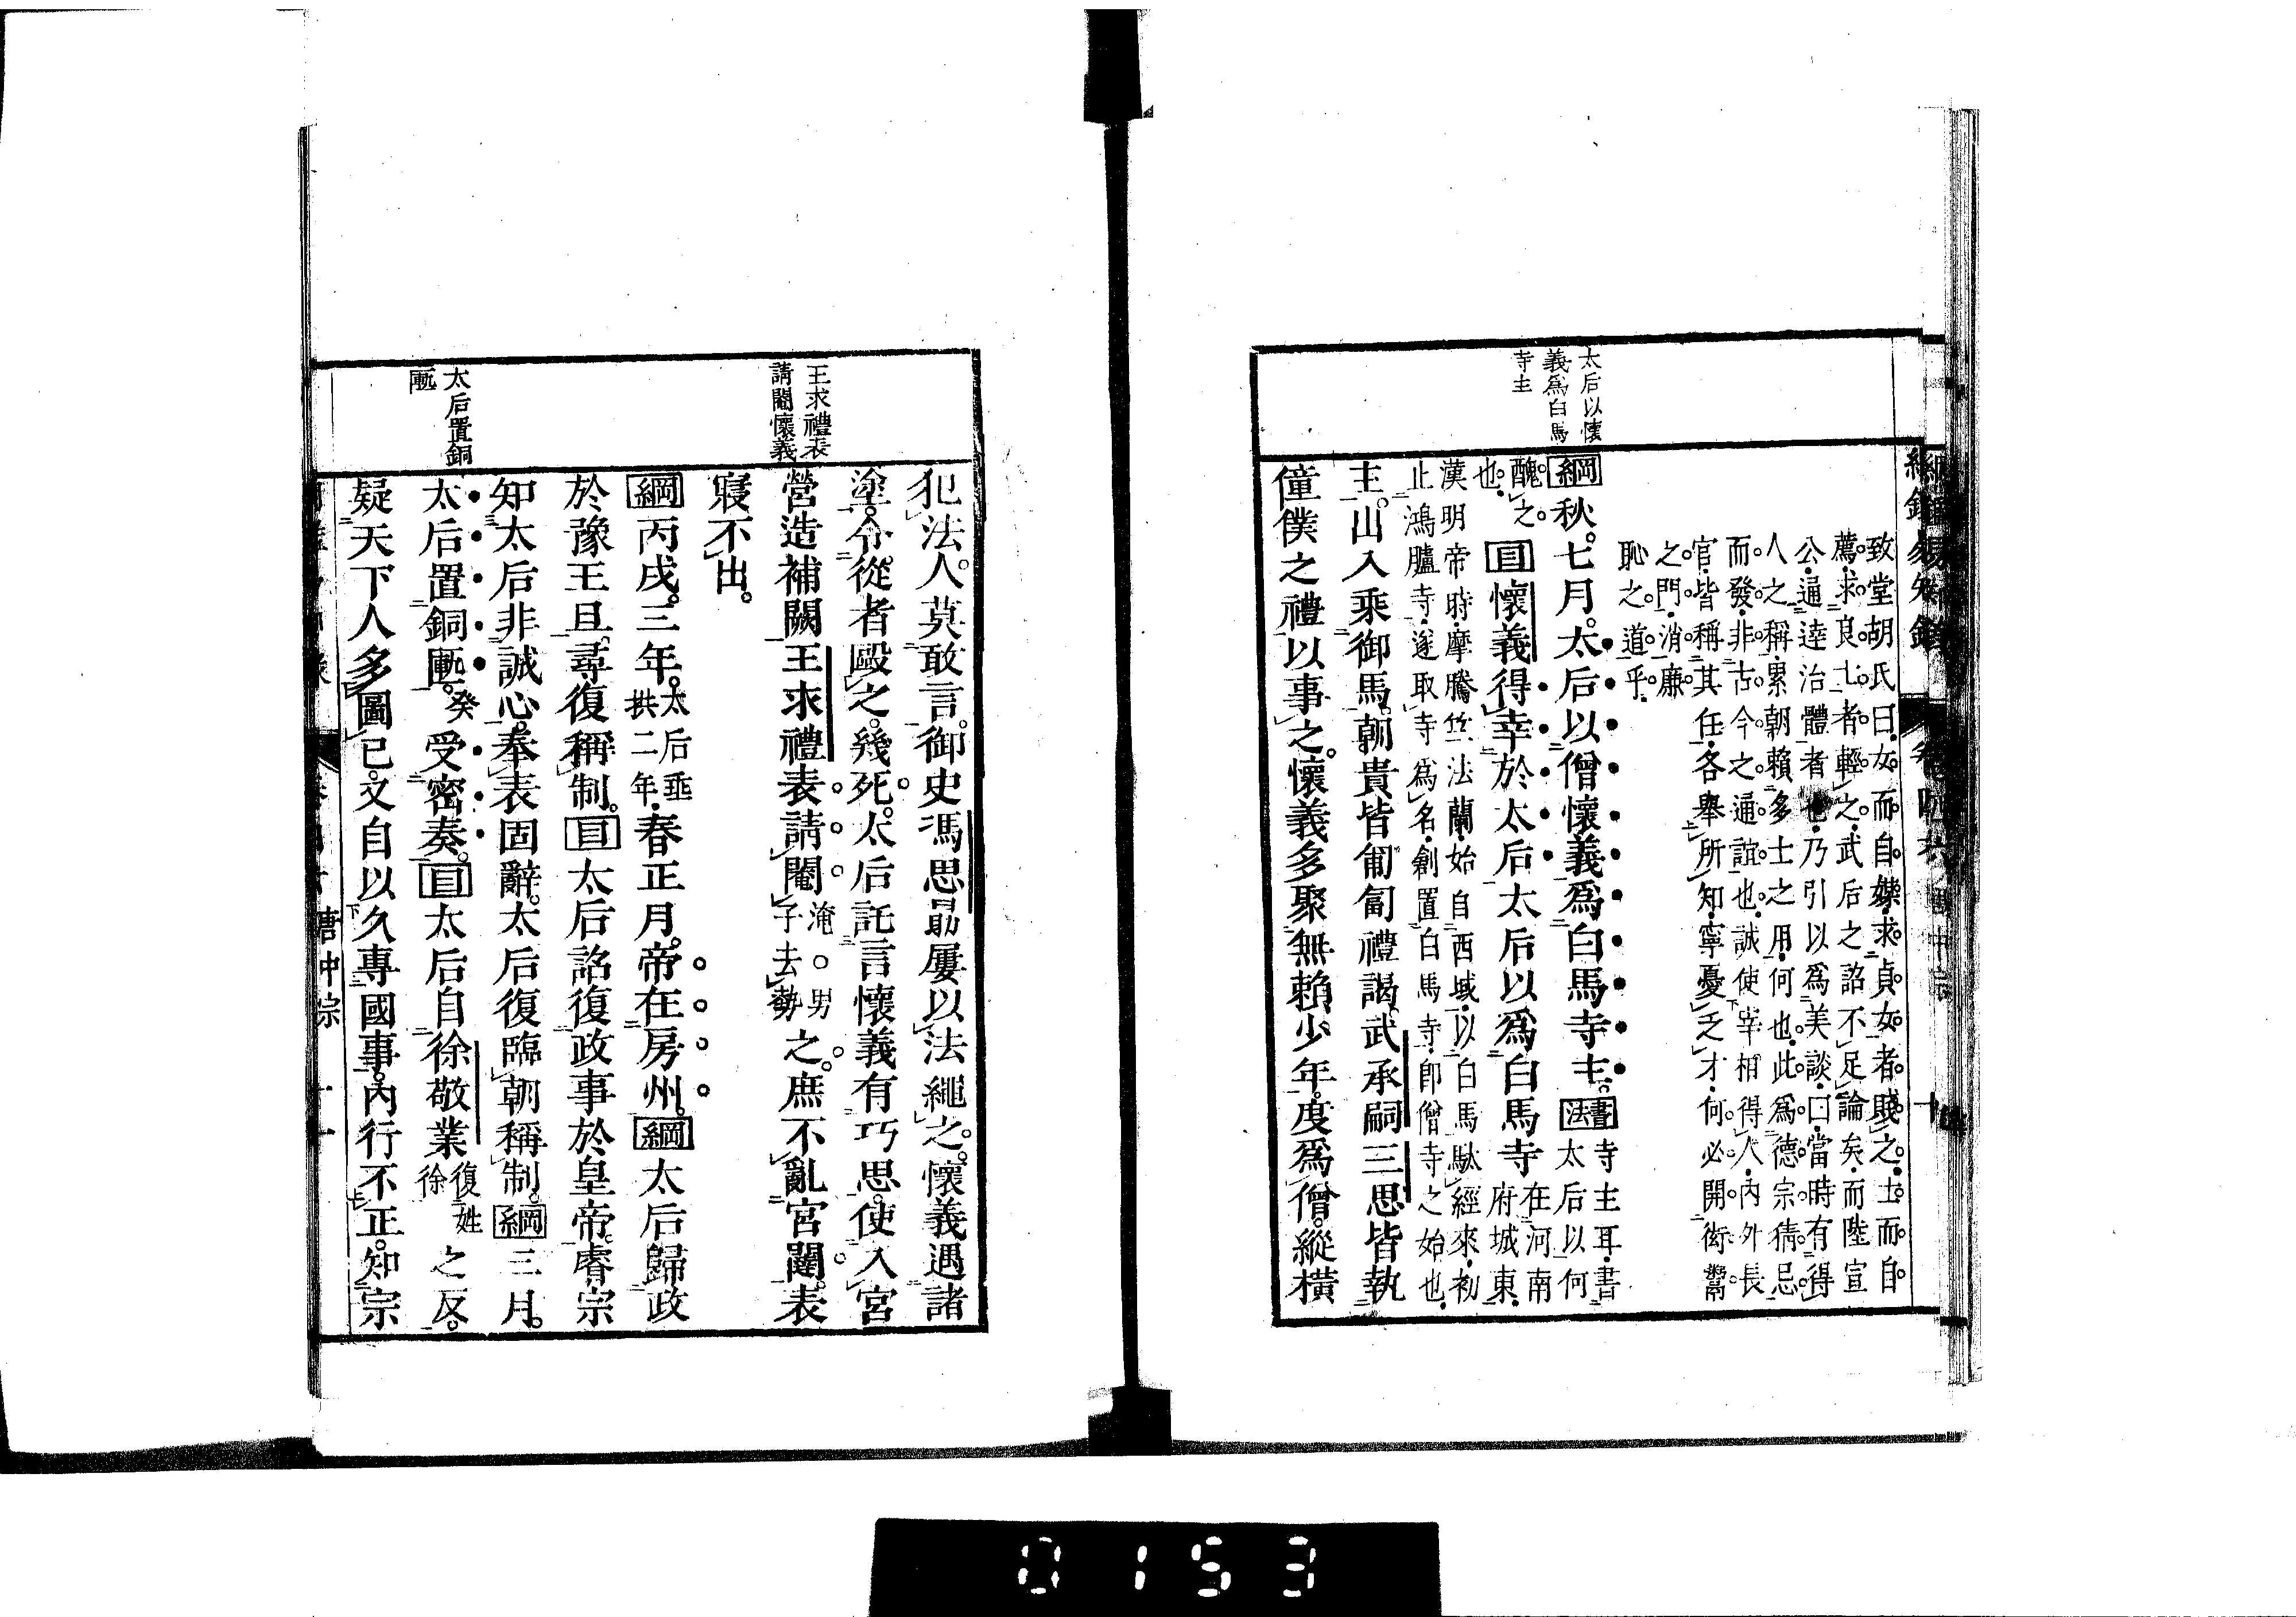 致堂胡氏曰女而自媒求貞女者賤之士而自
薦求良士者輕之武后之詔不足論矣而陸宣
公通達治體者也乃引以爲美談曰當時有得
人之稱累朝賴多士之用何也此爲德宗猜忌
而發非古今之通誼也誠使宰相得人內外長
官皆稱其任各舉所知寧憂乏才何必開衒鬻
之門消廉
恥之道乎
太后以懷
義爲白馬
寺主
綱秋七月太后以僧懷義爲白馬寺主書法寺主耳書太后以何
醜之也目懷義得幸於太后太后以爲白馬寺在河南府城東
漢明帝時摩騰竺法蘭始自西域以白馬馱經來初
止鴻臚寺遂取寺爲名創置白馬寺卽僧寺之始也
主出入乘御馬朝貴皆匍匐禮謁武承嗣三思皆執
僮僕之禮以事之懷義多聚無賴少年度爲僧縱橫
犯法人莫敢言御史馮思勗屢以法繩之懷義遇諸
塗令從者毆之幾死太后託言懷義有巧思使入宮
王求禮表
請閹懷義
營造補闕王求禮表請閹淹男子去勢之庶不亂宮闈表
寢不出
綱丙戌三年太后垂拱二年春正月帝在房州綱太后歸政
於豫王旦尋復稱制目太后詔復政事於皇帝睿宗
知太后非誠心奉表固辭太后復臨朝稱制綱三月
太后置銅
匭
太后置銅匭癸受密奏目太后自徐敬業復姓徐之反
疑天下人多圖己又自以久專國事內行不正知宗
唐中宗 十一